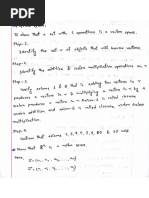 To show that a set with 2 operations is a vector space.
Step-1:
Identify the set V of objects that will become vectors.
Step-2:
Identify the addition & scalar multiplication operations on V
Step-3:
Verify axioms 1 & 6, that is adding two vectors in V
produces a vector in V & multiplying a vector in V by a
scalar produces a vector in V. Axiom-1 is called closure
under addition and axiom-6 is called closure under scalar
multiplication.
Step-4:
Confirm that axioms 2, 3, 4, 5, 7, 8, 9 & 10 hold
Show that is a vector space.